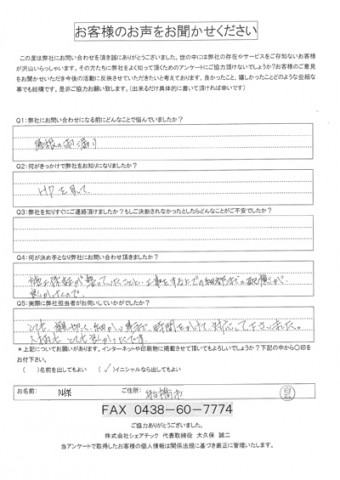 お客様のお声をお聞かせください
この度は弊社にお問い合わせを頂き誠にありがとうございました。世の中には弊社の存在やサービスをご存知ないお客様
が沢山いらっしゃいます。その方たちに弊社をよく知って頂くためのアンケートにご協力頂けないでしょうか?お客様のご意見
をお聞かせいただき今後の活動に反映させていただきたいと考えております。良かったこと、嬉しかったことどのような些細な
事でも結構です。是非ご協力お願い致します。(出来るだけ具体的に書いて頂ければ幸いです)
Q1:弊社にお問い合わせになる前にどんなことで悩んでいましたか?
屋根の雨漏り
Q2:何がきっかけで弊社をお知りになりましたか?
HPを見て
Q3:弊社を知りすぐにご連絡頂けましたか?もしご決断されなかったとしたらどんなことがご不安でしたか?
Q4:何が決め手となり弊社にお問い合わせ頂けましたか?
Q5:実際に弊社担当者がお伺いしていかがでしたか?
とても親切で細かい事まで、時間をかけて対応して下さいました。
*上記についてお願いがあります。インターネットや印刷物に掲載させて頂いてもよろしいでしょうか?下記の中から〇印を
お付下さい。
( )名前を出してもよい (✓)イニシャルなら出してもよい
お名前: N様 ご住所: 船橋市
FAX 0438-60-7774
ご協力ありがとうございました。
株式会社シェアテック 代表取締役 大久保 誠二
当アンケートで取得したお客様の個人情報は関係法規に基づき厳正に管理いたします。